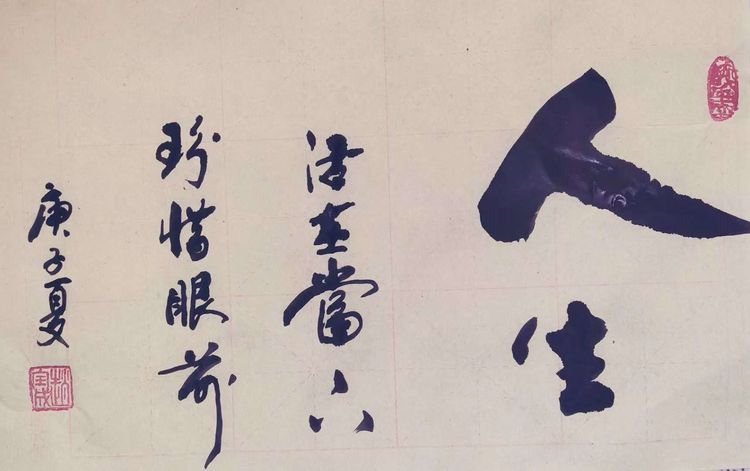 人生
活在當下
珍惜眼前
庚子夏